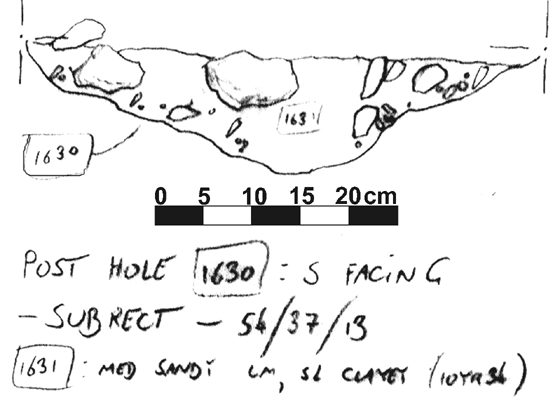 1631
1630
0 5 10 15 20cm
POST HOLE 1630 : S FACING
- SUBRECT - 54/37/13
1631 : MED SANDY LM, SL CLAYEY (10YR 36)